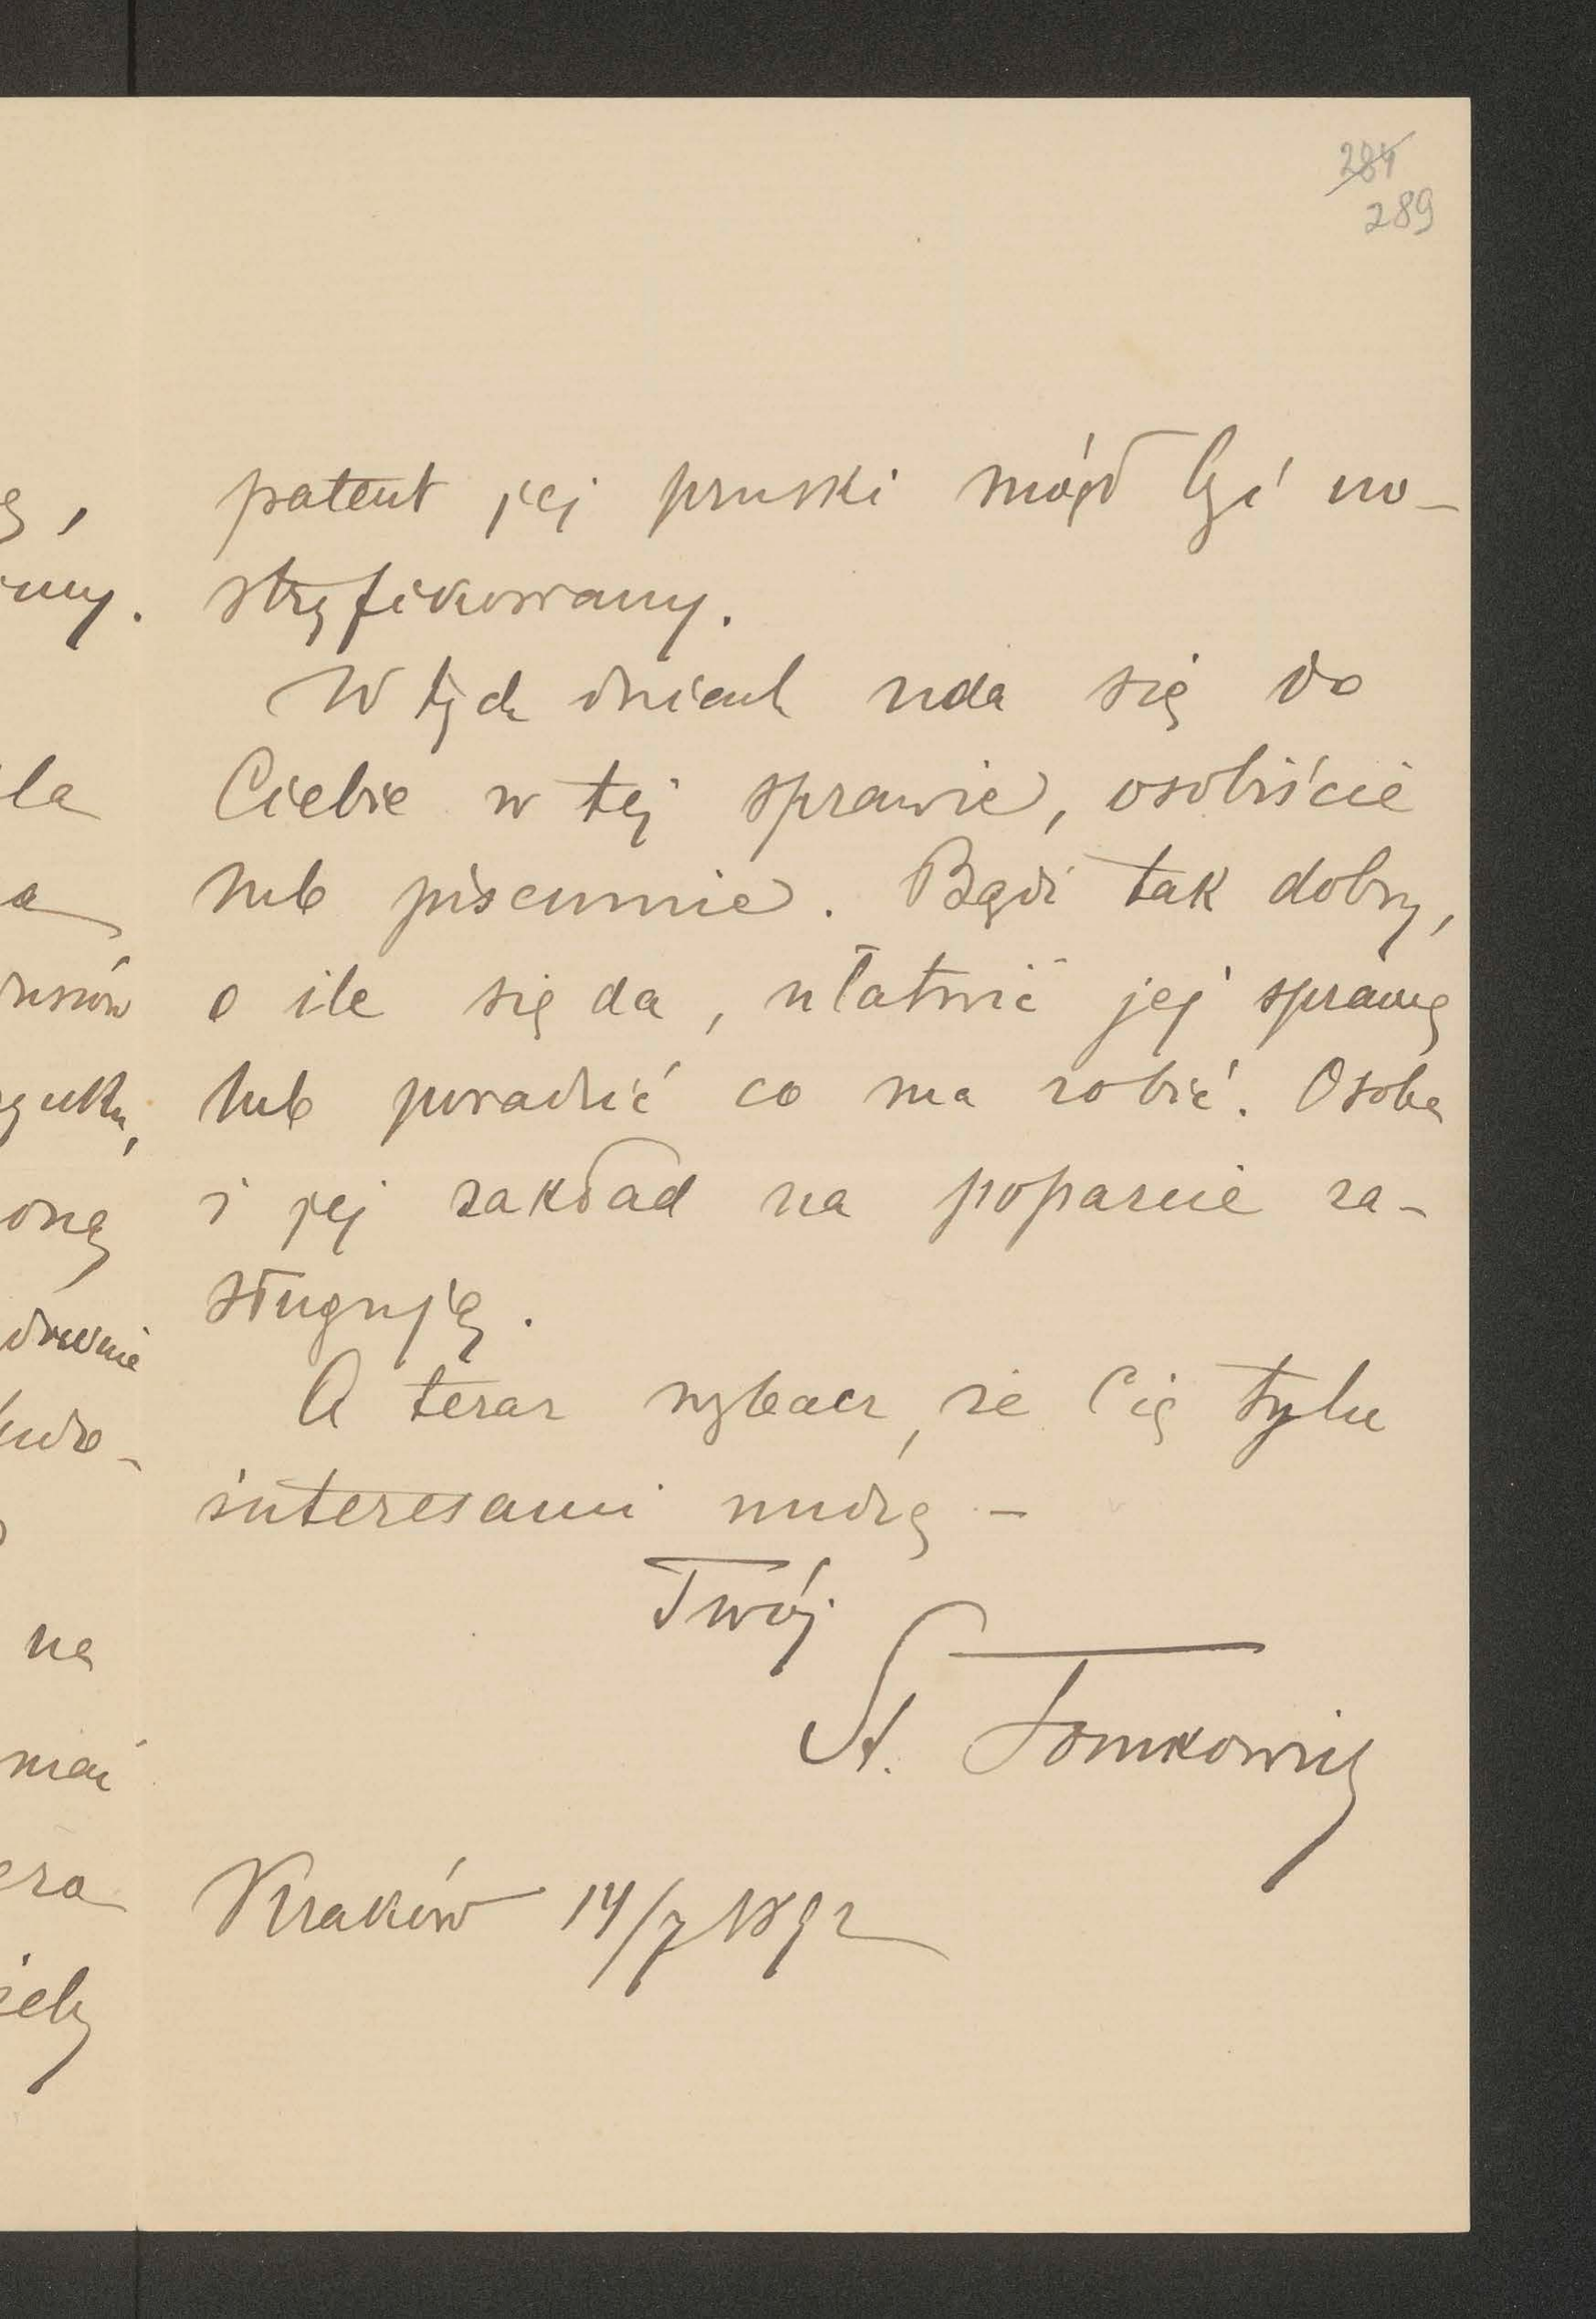 284
289
patent jej pruski mógł być no-
stryfikowany.
W tych dniach uda się do
Ciebie w tej sprawie, osobiście
lub piśmiennie. Bądź tak dobry,
o ile się da, ułatwić jej sprawę
lub poradzić co ma robić. Osoba
i jej zakład na poparcie za-
sługują.
A teraz wybacz, że Cię tylu
interesami nudzę –
Twój
St. Tomkowicz
Kraków 14/7 1892